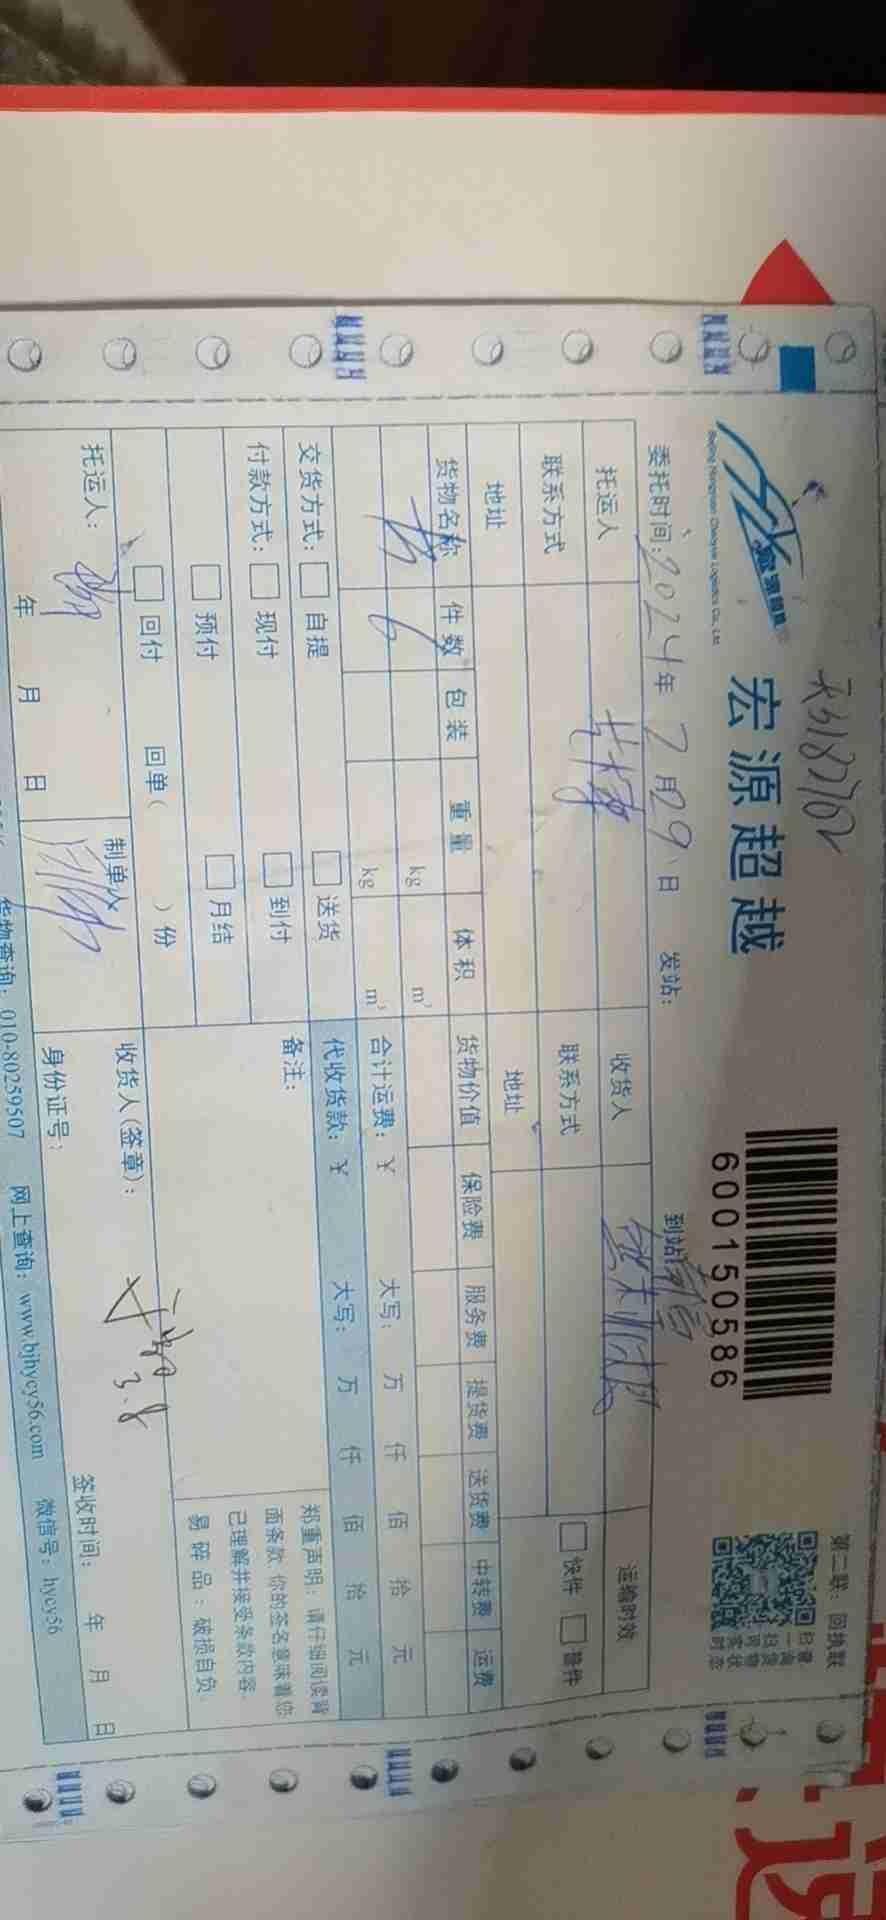 宏源超越
Beijing Hongyuan Chaoyue Logistics Co., Ltd.
600150586
第二联：回执联
委托时间：2024年2月29日 发站： 到站：
托运人 收货人 运输时效
联系方式 联系方式 快件 普件
地址 地址
货物名称 件数 包装 重量 体积 货物价值 保险费 服务费 提货费 送货费 中转费 运费
书 6 kg m³
kg m³ 合计运费：¥ 大写： 万 仟 佰 拾 元
交货方式： 自提 送货 代收货款：¥ 大写： 万 仟 佰 拾 元
付款方式： 现付 到付 备注：
预付 月结
回付 回单（ ）份
郑重声明：请仔细阅读背
面条款 你的签名意味着您
已理解并接受条款内容.
易碎品：破损自负.
托运人： 制单人 收货人(签章)：
3.8
年 月 日 身份证号： 签收时间： 年 月 日
货物查询：010-80259507 网上查询：www.bjhycy56.com 微信号：hycy56